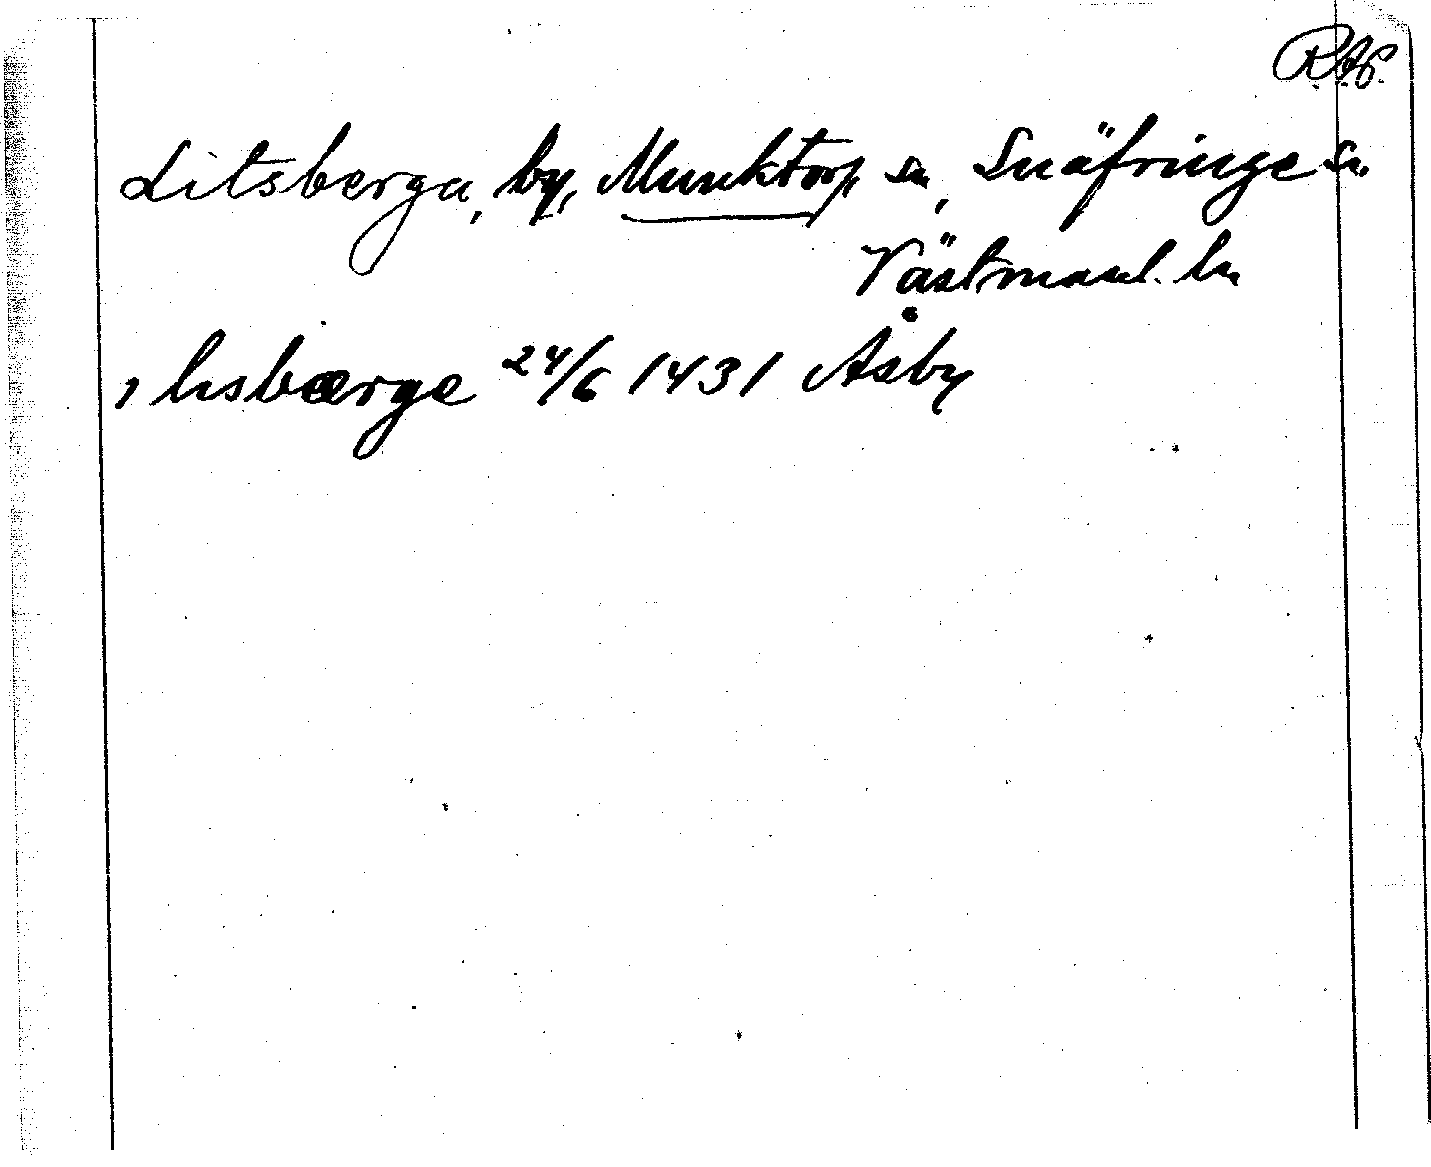 RAp.
Litsberga, by, Munktorp sn, Snäfringe hd.
Västmanl. ln
, lisbærge 24/6 1431 Åsby